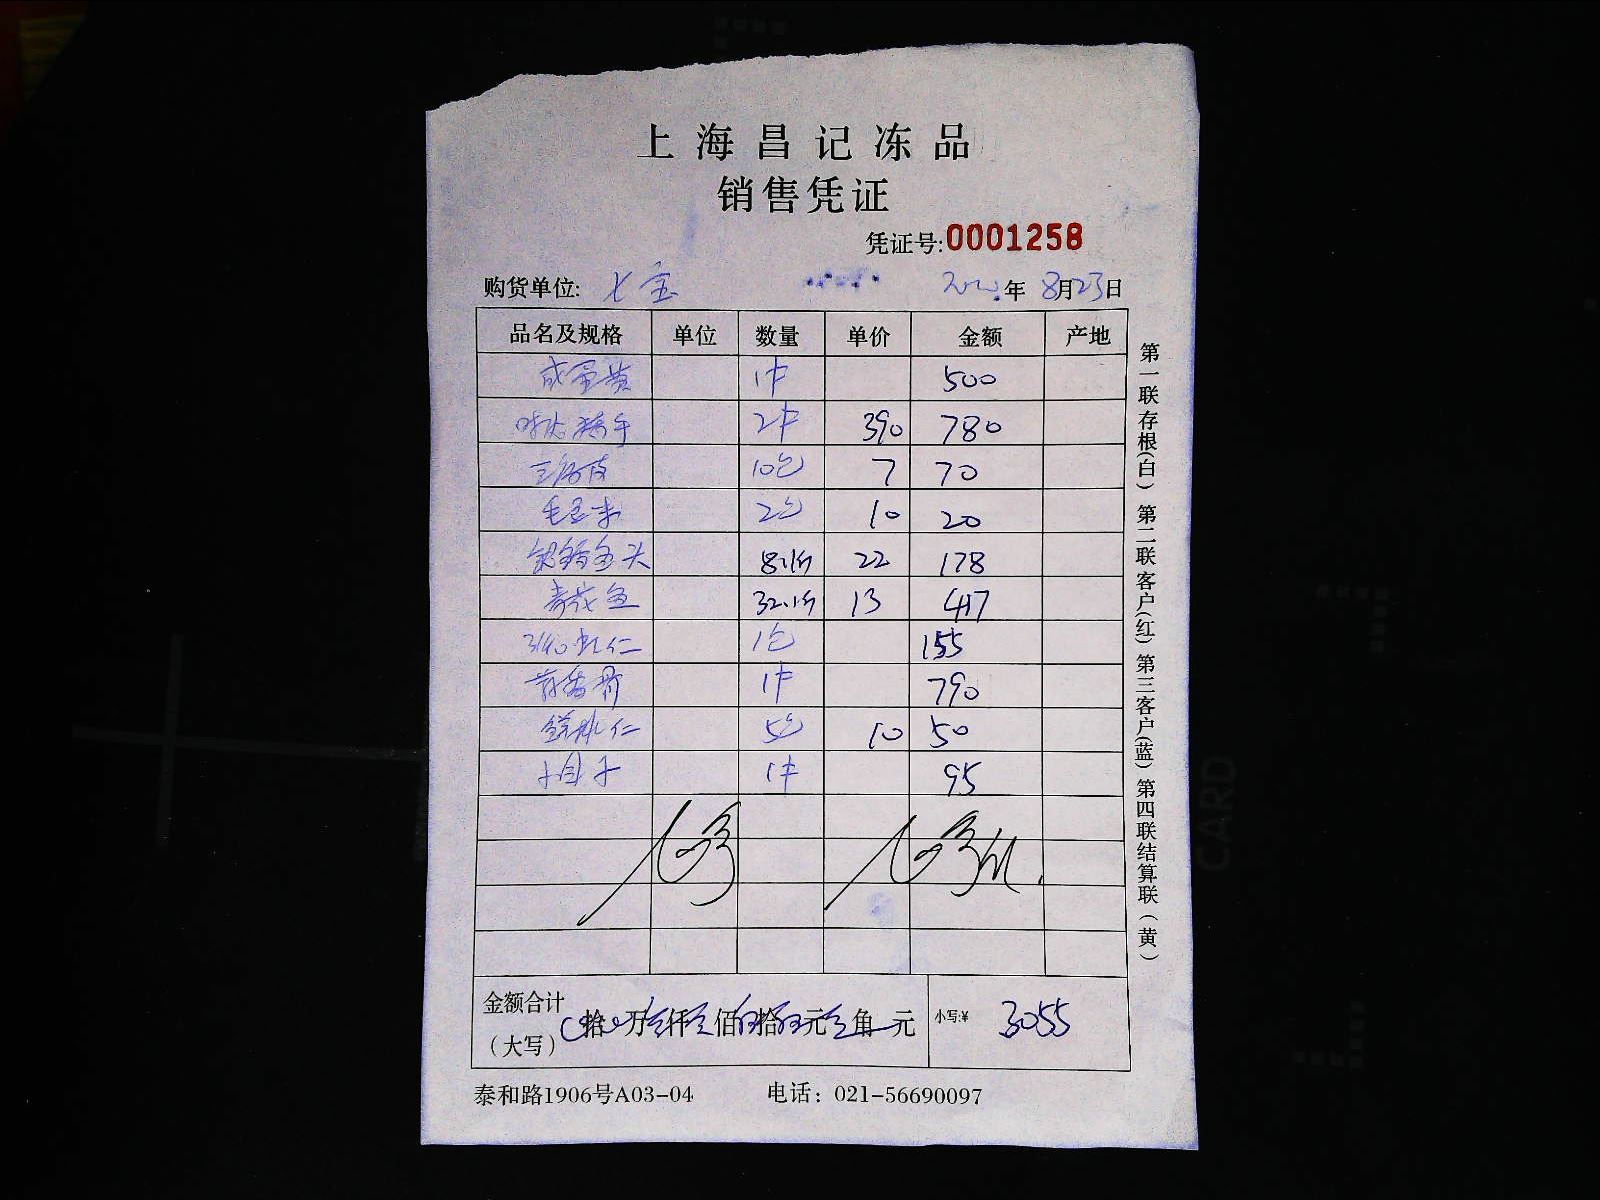 上海昌记冻品
销售凭证
凭证号:0001258
购货单位: 七宝 年 8月23日
品名及规格 单位 数量 单价 金额 产地
咸蛋黄 1件 500
2件 390 780
10包 7 70
毛豆米 2包 10 20
鱼头 8.1斤 22 178
32.1斤 13 417
31/40虾仁 1包 155
1件 790
仁 5包 10 50
1件 95
金额合计
(大写) 拾 万 仟 佰 拾 元 角 元 小写:¥ 3055
泰和路1906号A03-04 电话: 021-56690097
第一联存根(白) 第二联客户(红) 第三客户(蓝) 第四联结算联(黄)